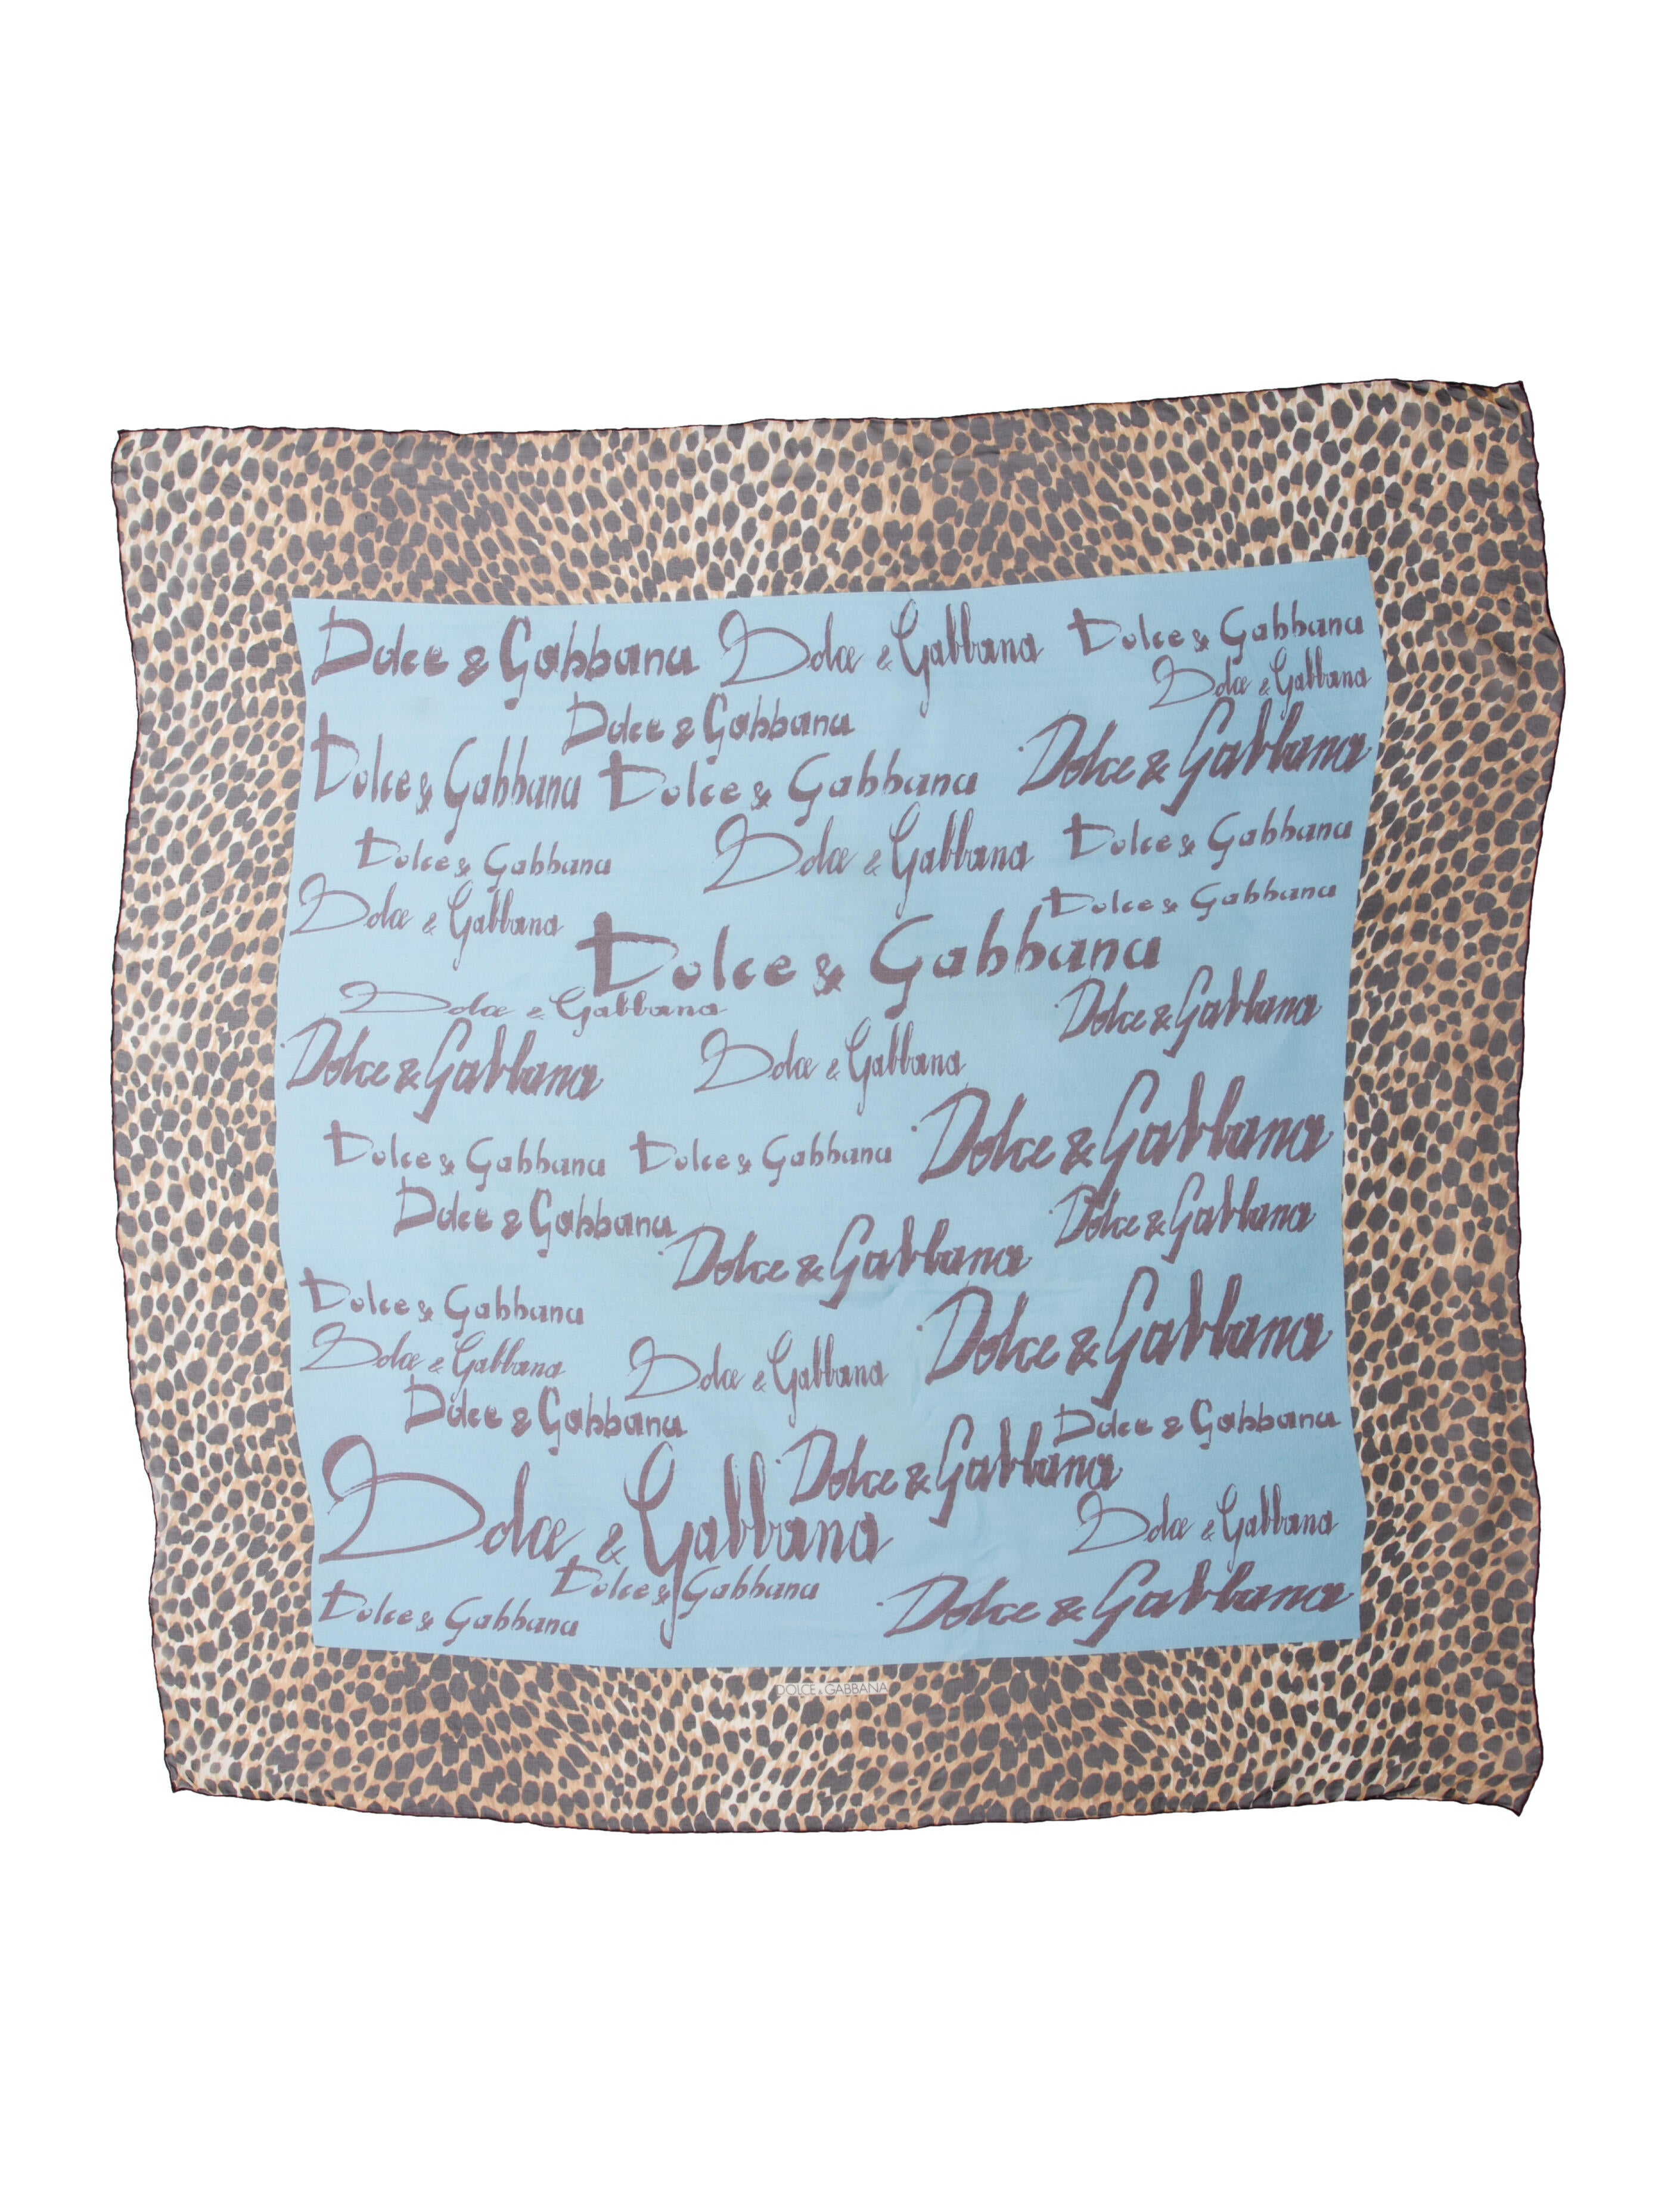 Dolce & Gabbana Dolce & Gabbana Dolce & Gabbana
Dolce & Gabbana
Dolce & Gabbana
Dolce & Gabbana Dolce & Gabbana Dolce & Gabbana
Dolce & Gabbana Dolce & Gabbana Dolce & Gabbana
Dolce & Gabbana Dolce & Gabbana
Dolce & Gabbana
Dolce & Gabbana Dolce & Gabbana
Dolce & Gabbana Dolce & Gabbana
Dolce & Gabbana Dolce & Gabbana Dolce & Gabbana
Dolce & Gabbana Dolce & Gabbana
Dolce & Gabbana
Dolce & Gabbana Dolce & Gabbana
Dolce & Gabbana Dolce & Gabbana
Dolce & Gabbana Dolce & Gabbana
Dolce & Gabbana
Dolce & Gabbana Dolce & Gabbana
Dolce & Gabbana
Dolce & Gabbana Dolce & Gabbana
DOLCE & GABBANA